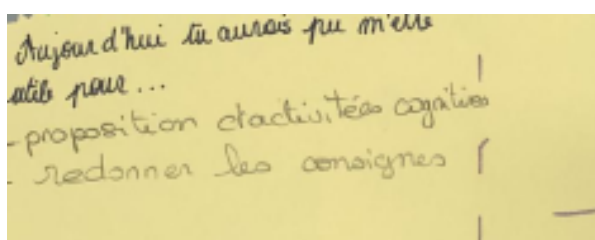 Aujourd'hui tu aurais pu m'être
utile pour...
- proposition d'activitées cognitives
- redonner les consignes